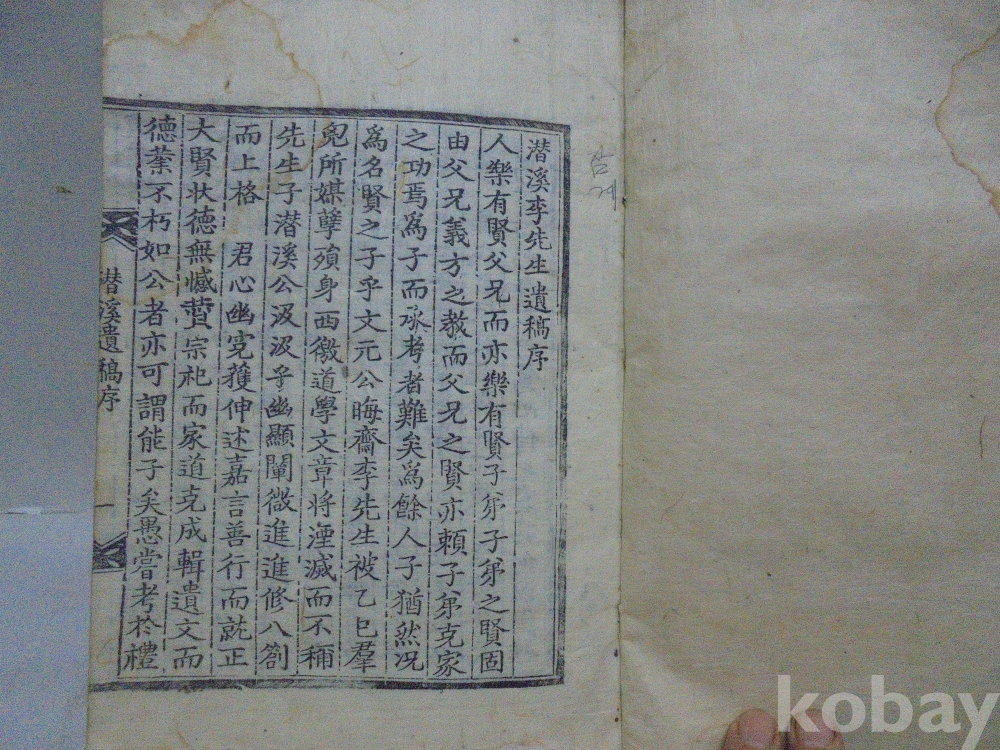 潛溪李先生遺稿序
人樂有賢父兄而亦樂有賢子弟子弟之賢固
由父兄義方之敎而父兄之賢亦賴子弟克家
之功焉爲子而承考者難矣爲餘人子猶然况
爲名賢之子乎文元公晦齋李先生被乙巳羣
兒所媒孽殞身西徼道學文章將湮滅而不稱
先生子潛溪公汲汲乎幽顯闡微進進修八劄
而上格 君心幽寃獲伸述嘉言善行而就正
大賢狀德無憾賣宗祀而家道克成輯遺文而
德業不朽如公者亦可謂能子矣愚嘗考於禮
潛溪遺稿序
一
잠
계
kobay